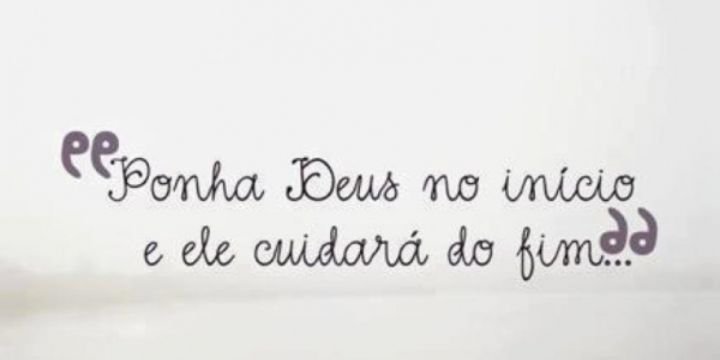 “Ponha Deus no início
e ele cuidará do fim...”